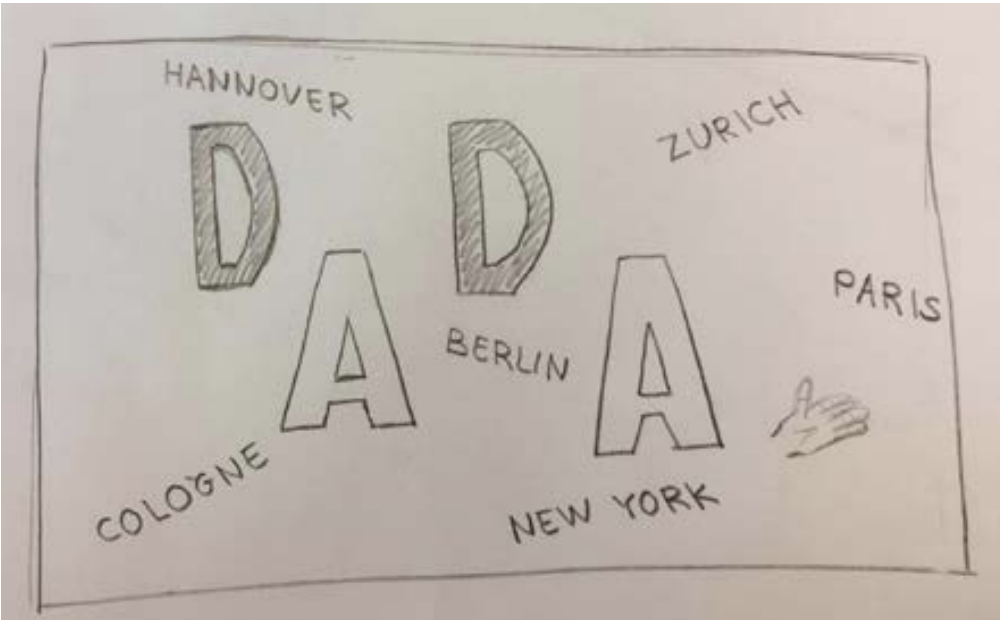 HANNOVER
ZURICH
DADA
PARIS
BERLIN
COLOGNE
NEW YORK